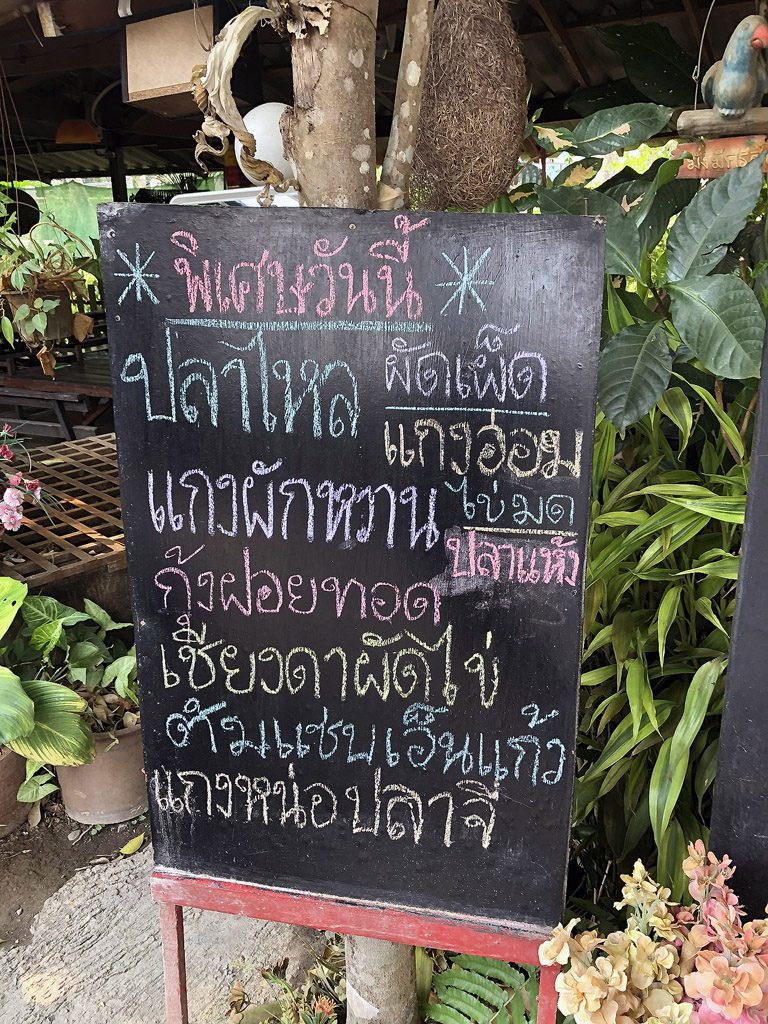 พิเศษวันนี้
ปลาไหล ผัดเผ็ด
แกงอ่อม
แกงผักหวาน ไข่มด
ปลาแห้ง
กุ้งฝอยทอด
เชียงดาผัดไข่
ตำมแซบเอ็นแก้ว
แกงหน่อปลาจี่